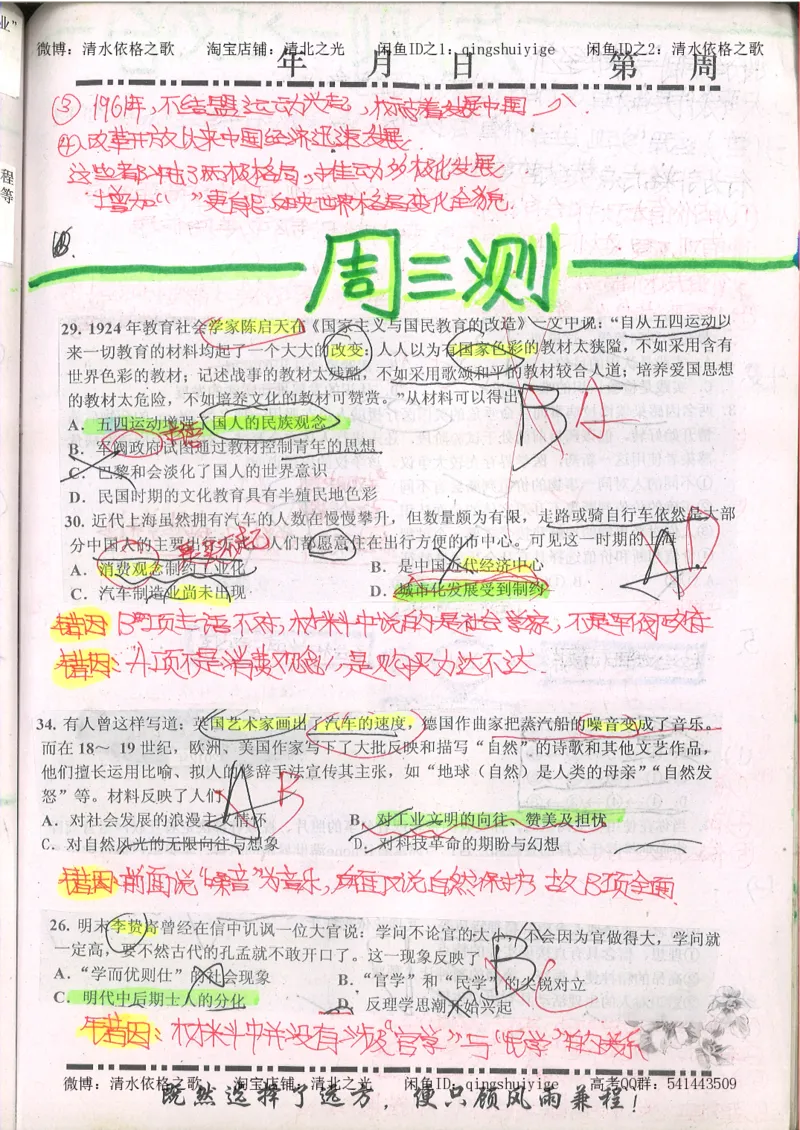 业”
程
等
微博：清水依格之歌 淘宝店铺：清北之光 闲鱼ID之1：qingshuiyige 闲鱼ID之2：清水依格之歌
年 月 日 第 周
③ 1961年，不结盟运动兴起，标志着发展中国
④改革开放以来中国经济迅速发展
这些都冲击了两极格局，推动多极化发展
增加“ ”更有 反映世界格局变化全貌.
周三测
29. 1924 年教育社会学家陈启天在《国家主义与国民教育的改造》一文中说：“自从五四运动以
来一切教育的材料均起了一个大大的改变：人人以为有国家色彩的教材太狭隘，不如采用含有
世界色彩的教材；记述战事的教材太残酷，不如采用歌颂和平的教材较合人道；培养爱国思想
的教材太危险，不如培养文化的教材可赞赏。”从材料可以得出
B A
A．五四运动增强了国人的民族观念
B．军阀政府试图通过教材控制青年的思想
C．巴黎和会淡化了国人的世界意识
D．民国时期的文化教育具有半殖民地色彩
30. 近代上海虽然拥有汽车的人数在慢慢攀升，但数量颇为有限，走路或骑自行车依然是大部
分中国人的主要出行方式，人们都愿意住在出行方便的市中心。可见这一时期的上海
A D
A．消费观念制约工业化 B．是中国近代经济中心
C．汽车制造业尚未出现 D．城市化发展受到制约
错因：B项主语不对，材料中说的是社会学家，不是军阀政府
错因：A项不是消费观念，是购买力达不达.
34. 有人曾这样写道：英国艺术家画出了汽车的速度，德国作曲家把蒸汽船的噪音变成了音乐。
而在 18～ 19 世纪，欧洲、美国作家写下了大批反映和描写“自然”的诗歌和其他文艺作品，
他们擅长运用比喻、拟人的修辞手法宣传其主张，如“地球（自然）是人类的母亲”“自然发
怒”等。材料反映了人们
A B
A．对社会发展的浪漫主义情怀 B．对工业文明的向往、赞美及担忧
C．对自然风光的无限向往与想象 D．对科技革命的期盼与幻想
错因：前面说“噪音”为音乐，后面又说自然保护 故B项全面.
26. 明末李贽曾经在信中讥讽一位大官说：学问不论官的大小，不会因为官做得大，学问就
一定高，要不然古代的孔孟就不敢开口了。这一现象反映了
B C
A．“学而优则仕”的社会现象 B．“官学”和“民学”的尖锐对立
C．明代中后期士人的分化 D．反理学思潮开始兴起
错因：材料中并没有涉及“官学”与“民学”的关系
微博：清水依格之歌 淘宝店铺：清北之光 闲鱼ID：qingshuiyige 高考QQ群：541443509
既然选择了远方，便只顾风雨兼程！